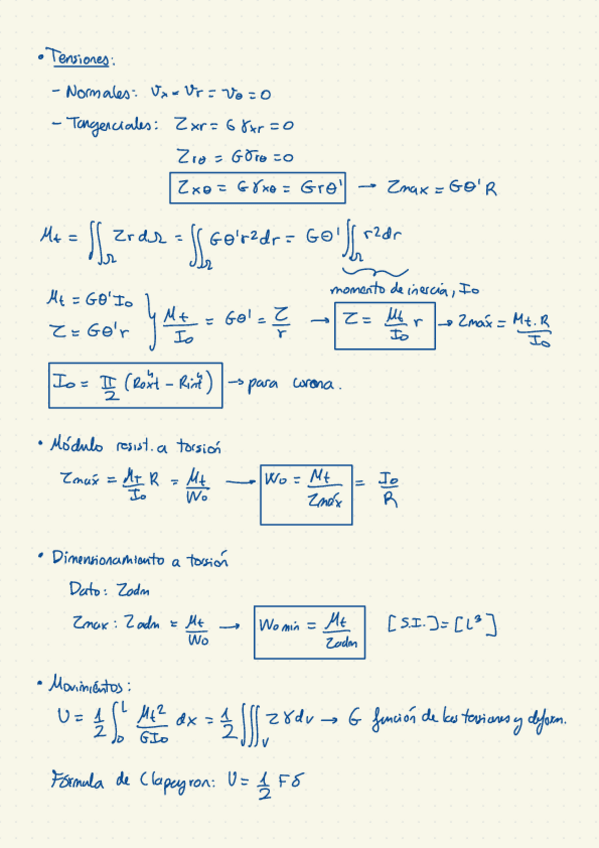 • Tensiones:
– Normales: σx = σr = σθ = 0
– Tangenciales: τxr = Gγxr = 0
τrθ = Gγrθ = 0
τxθ = Gγxθ = Grθ' → τmax = Gθ' R
Mt = ∬Ω τ r dΩ = ∬Ω Gθ' r² dr = Gθ' ∬Ω r² dr
momento de inercia, Io
Mt = Gθ' Io
τ = Gθ' r
} Mt/Io = Gθ' = τ/r → τ = Mt/Io r → τmáx = Mt·R/Io
Io = π/2 (Rext⁴ – Rint⁴) → para corona.
• Módulo resist. a torsión
τmáx = Mt/Io R = Mt/Wo → Wo = Mt/τmáx = Io/R
• Dimensionamiento a torsión
Dato: τadm
τmax : τadm = Mt/Wo → Wo min = Mt/τadm [S.I.] = [L³]
• Movimientos:
U = 1/2 ∫₀ᴸ Mt²/GIo dx = 1/2 ∭v τγ dv → G función de las tensiones y deform.
Fórmula de Clapeyron: U = 1/2 Fδ